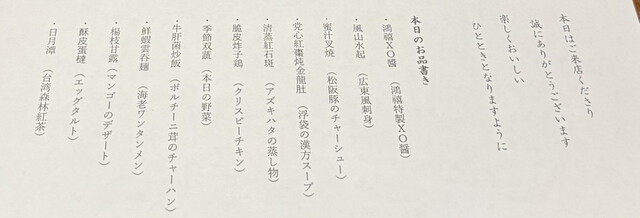 本日はご来店くださり
誠にありがとうございます
楽しくおいしい
ひとときとなりますように
本日のお品書き
・鴻禧XO醬 (鴻禧特製XO醬)
・風山水起 (広東風刺身)
・蜜汁叉燒 (松阪豚のチャーシュー)
・党心紅棗炖金龍肚 (浮袋の漢方スープ)
・清蒸紅石斑 (アズキハタの蒸し物)
・脆皮炸子鶏 (クリスピーチキン)
・季節双蔬 (本日の野菜)
・牛肝菌炒飯 (ポルチーニ茸のチャーハン)
・鮮蝦雲呑麺 (海老ワンタンメン)
・楊枝甘露 (マンゴーのデザート)
・酥皮蛋撻 (エッグタルト)
・日月潭 (台湾森林紅茶)